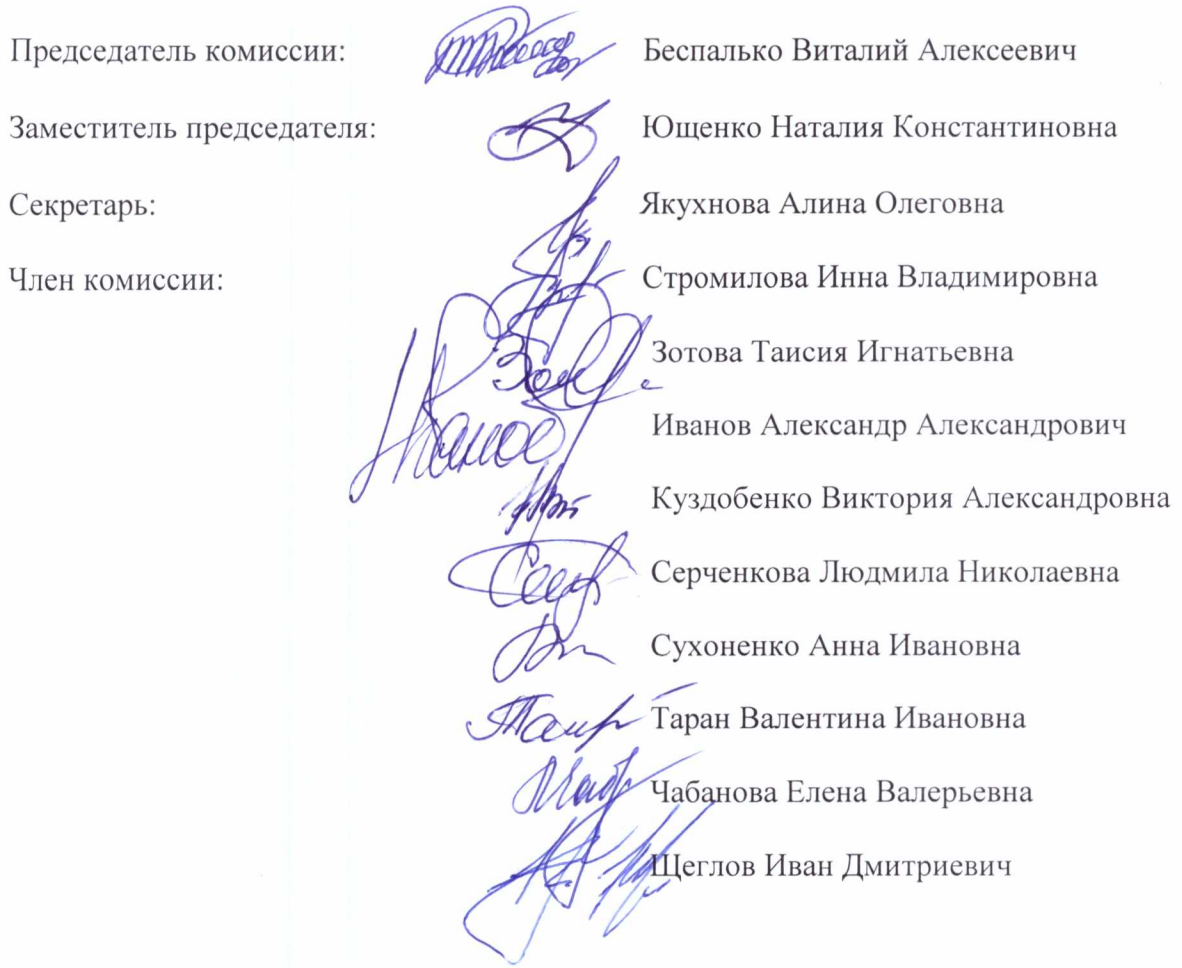 Председатель комиссии: Беспалько Виталий Алексеевич
Заместитель председателя: Ющенко Наталия Константиновна
Секретарь: Якухнова Алина Олеговна
Член комиссии: Стромилова Инна Владимировна
Зотова Таисия Игнатьевна
Иванов Александр Александрович
Куздобенко Виктория Александровна
Серченкова Людмила Николаевна
Сухоненко Анна Ивановна
Таран Валентина Ивановна
Чабанова Елена Валерьевна
Щеглов Иван Дмитриевич